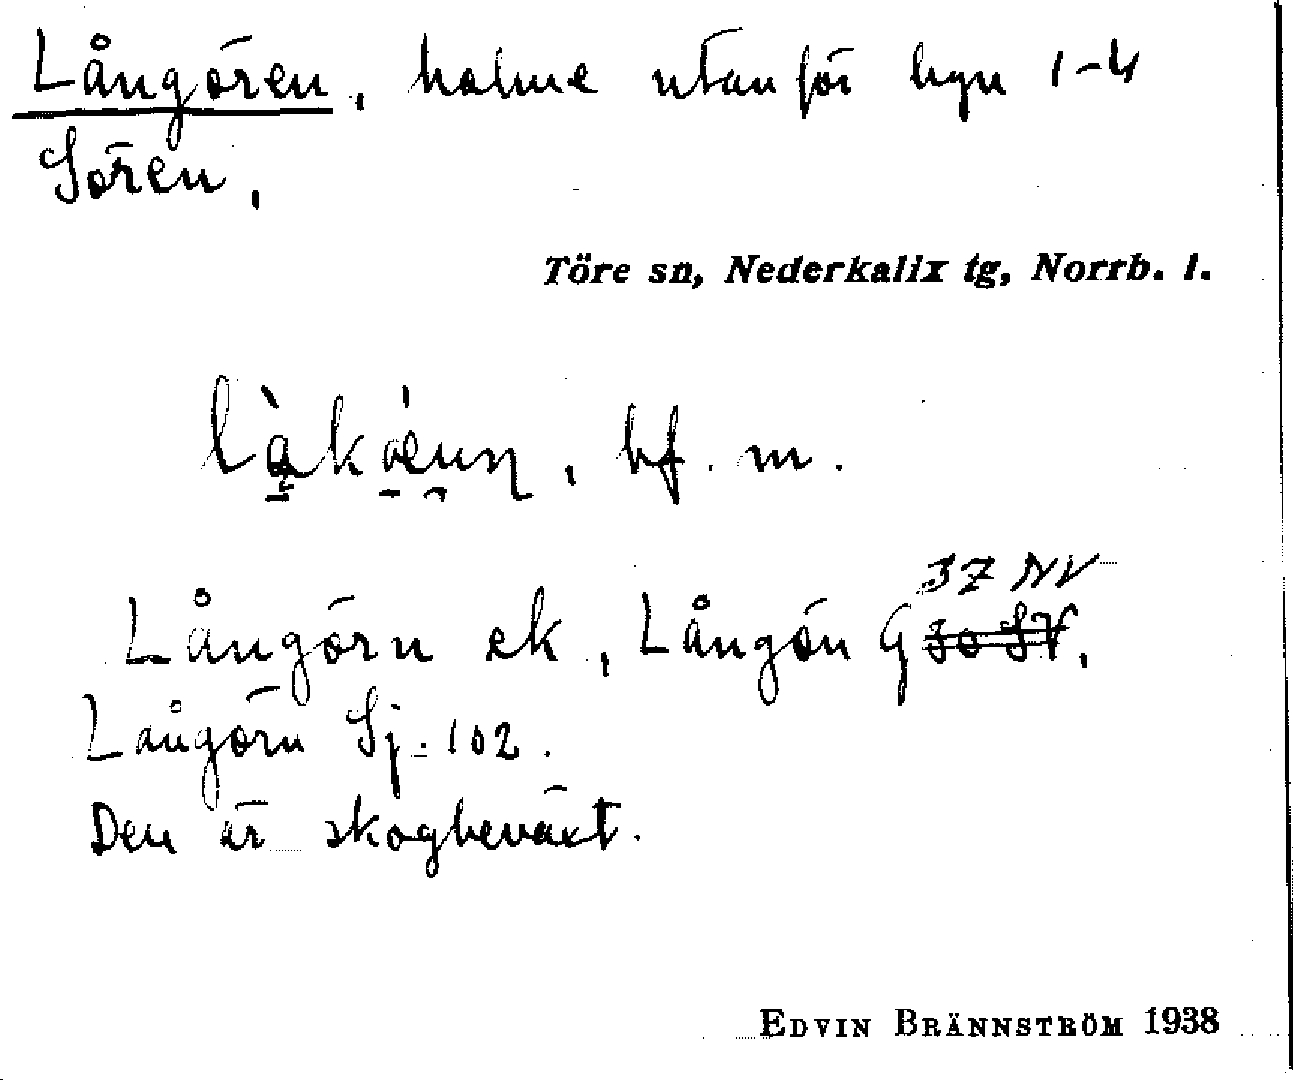 Långören, holme utanför byn 1-4
Sören.
Töre sn, Nederkalix tg, Norrb. l.
bf. m.
37 NV
Långörn ek, Långön G 30 SV.
Långörn Sj. 102.
Den är skogbeväxt.
EDVIN BRÄNNSTRÖM 1938